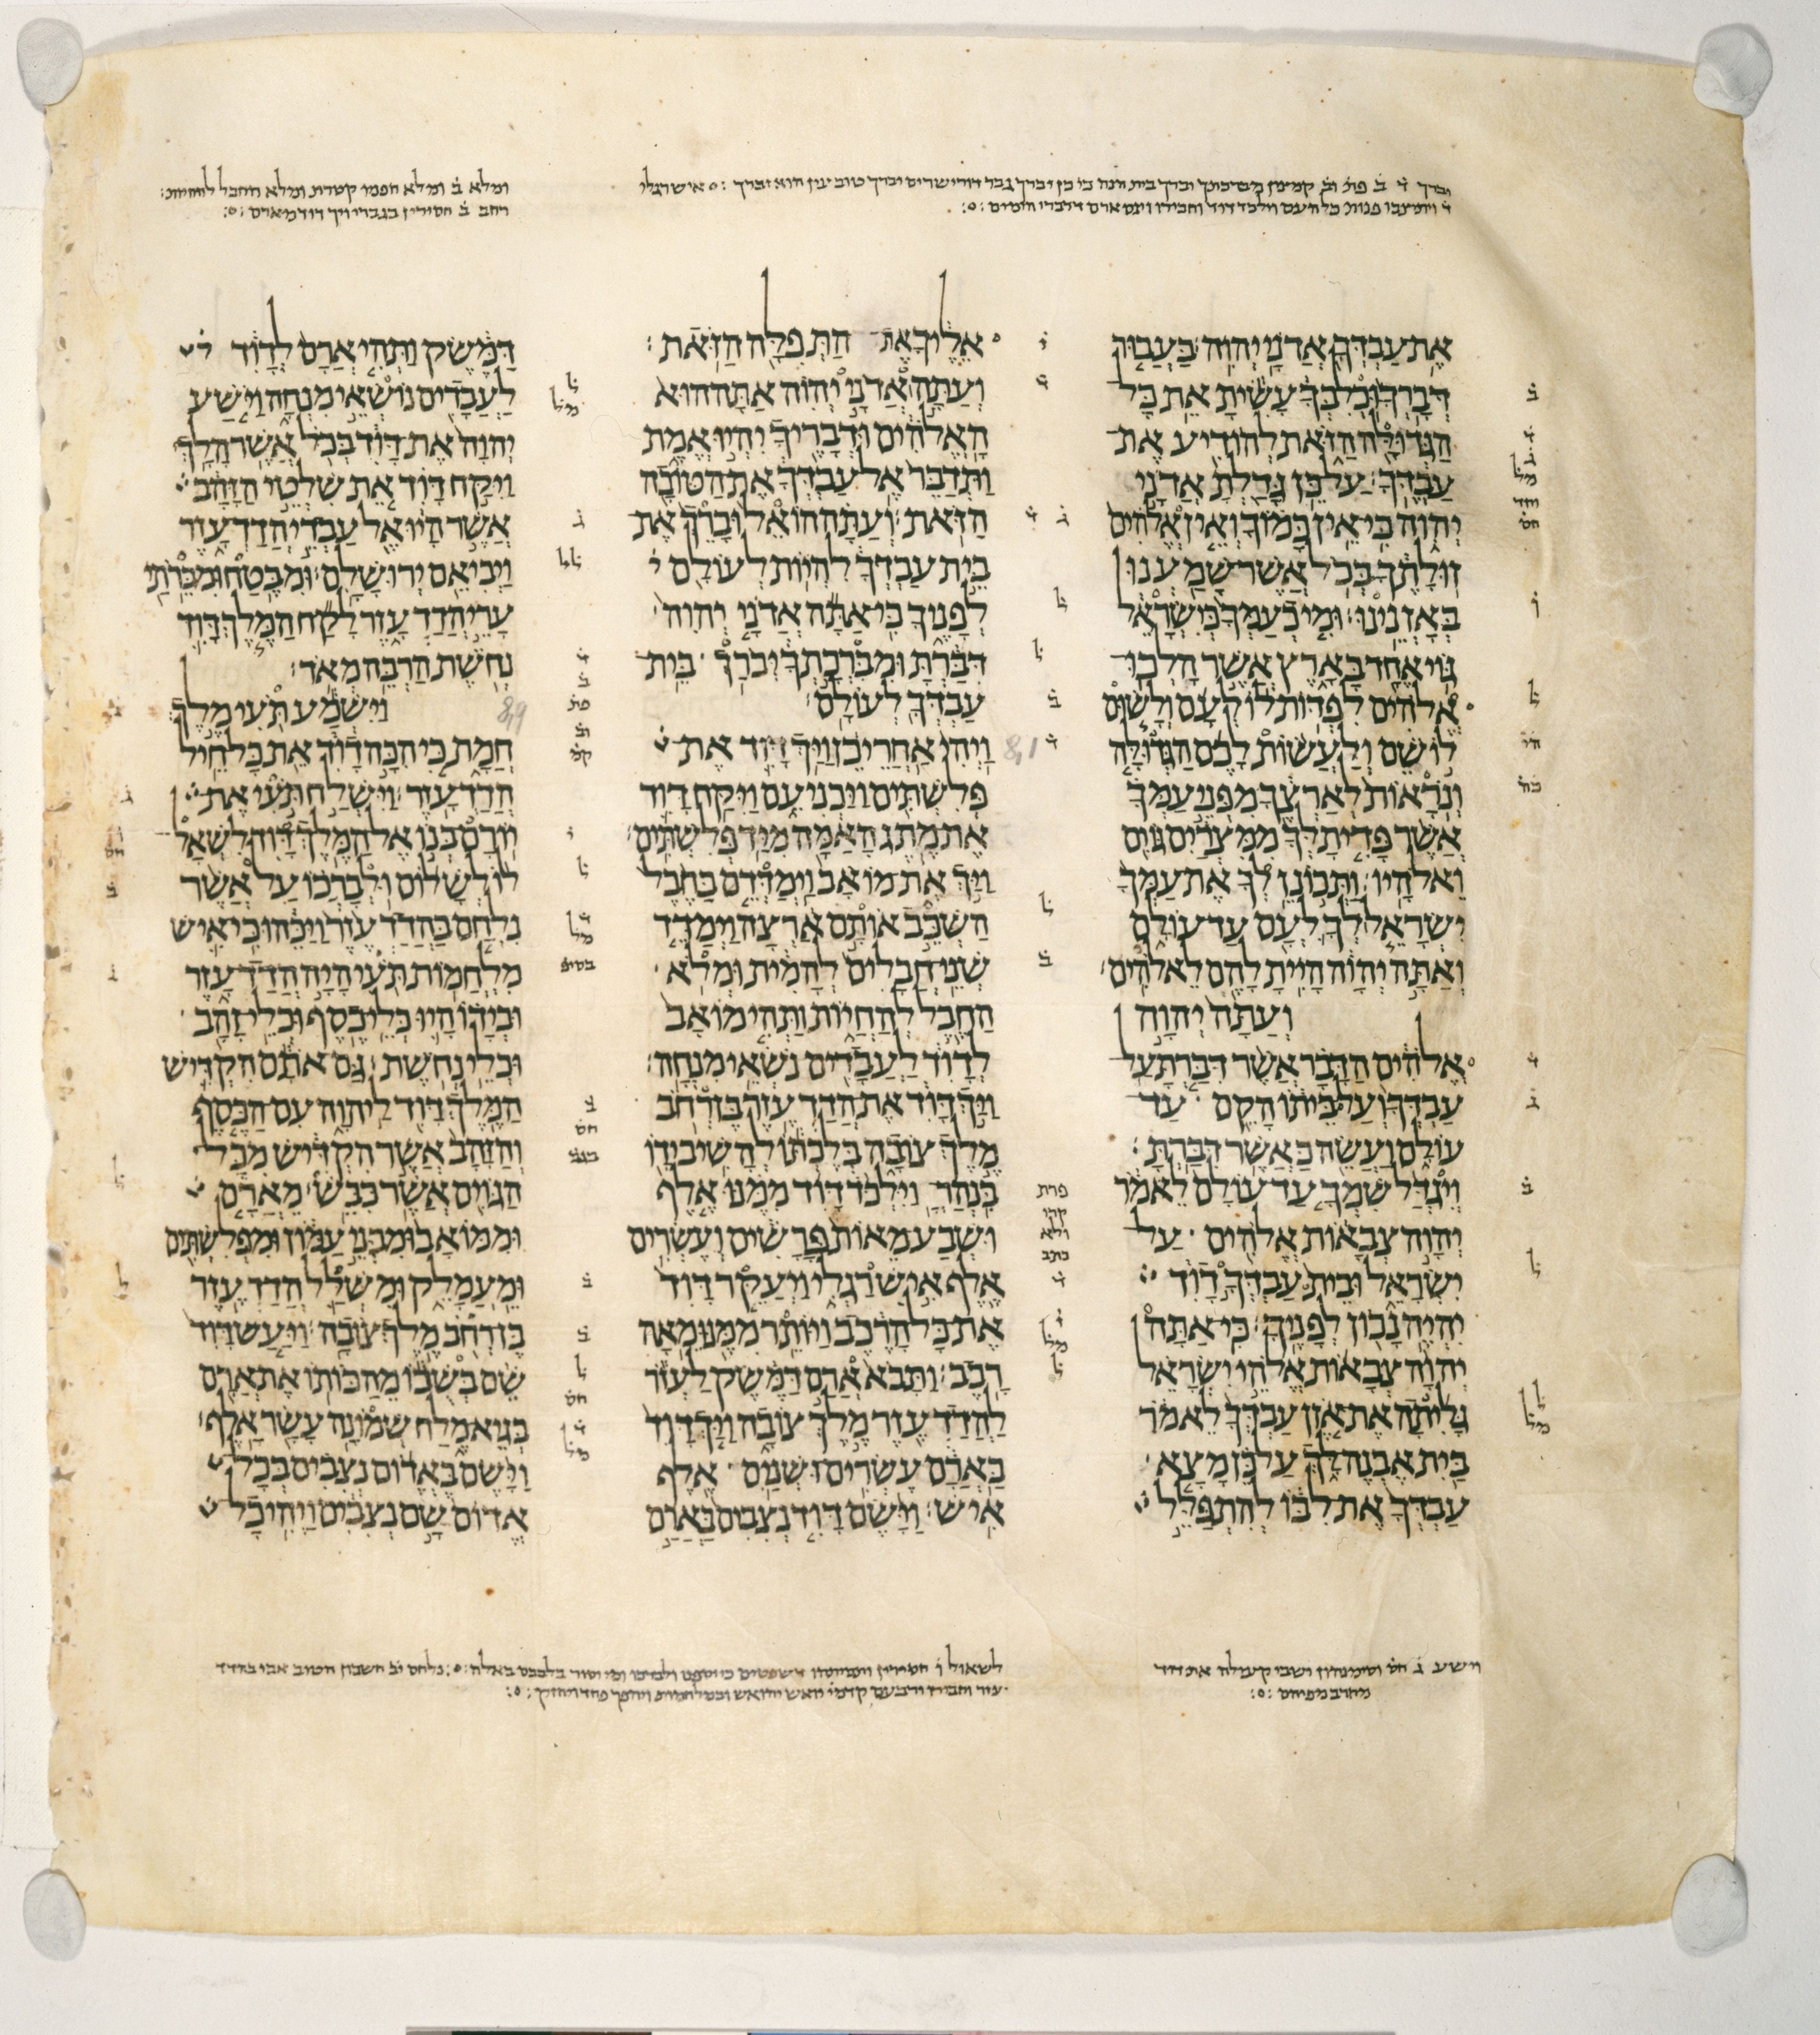 וברך ד ב פת וב קמצין מברכתך יברך בית
ומלא ב ומלא חפניו קטרת ומלא החבל להחיות
את עבדך אדני יהוה בעבור
דברך וכלבך עשית את כל
הגדולה הזאת להודיע את
עבדך על כן גדלת אדני
יהוה כי אין כמוך ואין אלהים
זולתך בכל אשר שמענו
באזנינו ומי כעמך כישראל
גוי אחד בארץ אשר הלכו
אלהים לפדות לו לעם ולשום
לו שם ולעשות לכם הגדולה
ונראות לארצך מפני עמך
אשר פדית לך ממצרים גוים
ואלהיו ותכונן לך את עמך
ישראל לך לעם עד עולם
ואתה יהוה היית להם לאלהים
ועתה יהוה
אלהים הדבר אשר דברת על
עבדך ועל ביתו הקם עד
עולם ועשה כאשר דברת
ויגדל שמך עד עולם לאמר
יהוה צבאות אלהים על
ישראל ובית עבדך דוד
יהיה נכון לפניך כי אתה
יהוה צבאות אלהי ישראל
גליתה את אזן עבדך לאמר
בית אבנה לך על כן מצא
עבדך את לבו להתפלל
אליך את התפלה הזאת
ועתה אדני יהוה אתה הוא
האלהים ודבריך יהיו אמת
ותדבר אל עבדך את הטובה
הזאת ועתה הואל וברך את
בית עבדך להיות לעולם
לפניך כי אתה אדני יהוה
דברת ומברכתך יברך בית
עבדך לעולם
ויהי אחרי כן ויך דוד את
8,1
פלשתים ויכניעם ויקח דוד
את מתג האמה מיד פלשתים
ויך את מואב וימדדם בחבל
השכב אותם ארצה וימדד
שני חבלים להמית ומלא
החבל להחיות ותהי מואב
לדוד לעבדים נשאי מנחה
ויך דוד את הדדעזר בן רחב
מלך צובה בלכתו להשיב ידו
בנהר וילכד דוד ממנו אלף
ושבע מאות פרשים ועשרים
אלף איש רגלי ויעקר דוד
את כל הרכב ויותר ממנו מאה
רכב ותבא ארם דמשק לעזר
להדדעזר מלך צובה ויך דוד
בארם עשרים ושנים אלף
איש וישם דוד נצבים בארם
דמשק ותהי ארם לדוד
לעבדים נושאי מנחה וישע
יהוה את דוד בכל אשר הלך
ויקח דוד את שלטי הזהב
אשר היו אל עבדי הדדעזר
ויביאם ירושלם ומבטח ומברתי
ערי הדדעזר לקח המלך דוד
נחשת הרבה מאד
וישמע תעי מלך
8,9
חמת כי הכה דוד את כל חיל
הדדעזר וישלח תעי את
יורם בנו אל המלך דוד לשאל
לו לשלום ולברכו על אשר
נלחם בהדדעזר ויכהו כי איש
מלחמות תעי היה הדדעזר
ובידו היו כלי כסף וכלי זהב
וכלי נחשת גם אתם הקדיש
המלך דוד ליהוה עם הכסף
והזהב אשר הקדיש מכל
הגוים אשר כבש מארם
וממואב ומבני עמון ומפלשתים
ומעמלק ומשלל הדדעזר
בן רחב מלך צובה ויעש דוד
שם בשבו מהכותו את ארם
בגיא מלח שמונה עשר אלף
וישם באדום נצבים בכל
אדום שם נצבים ויהי כל